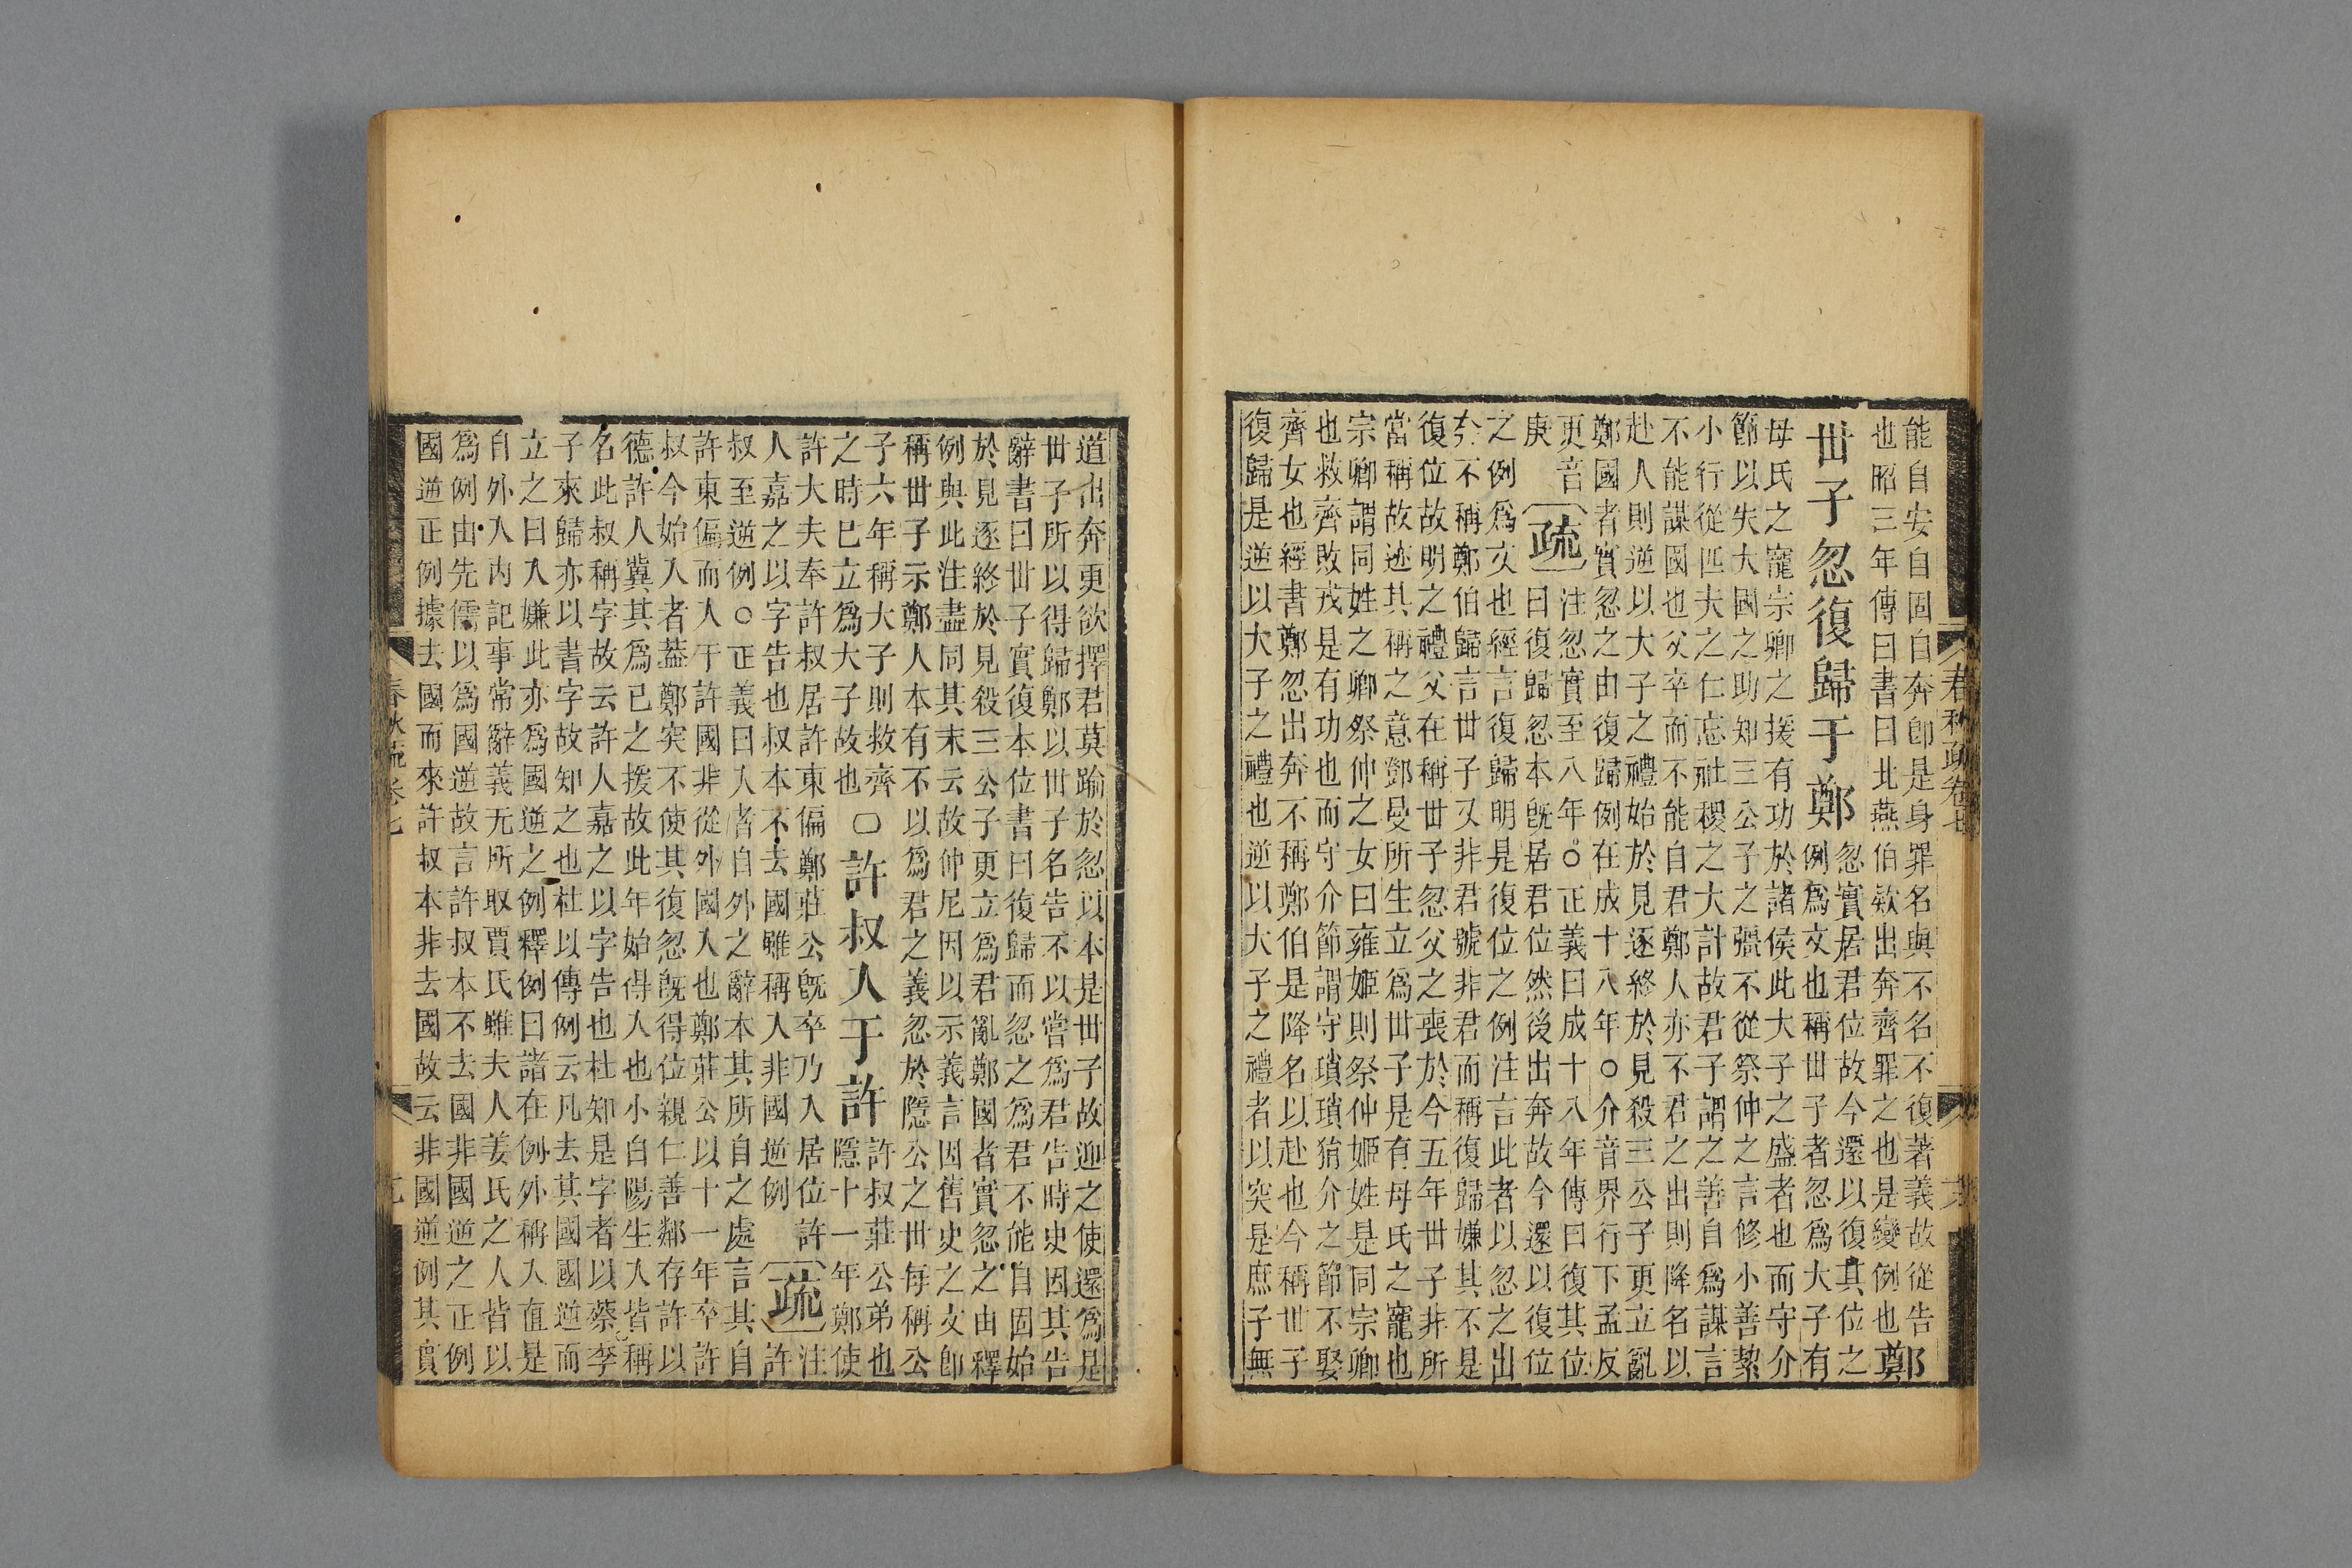 能自安自固自奔卽是身罪名與不名不復著義故從告
也昭三年傳曰書曰北燕伯欵出奔齊罪之也是變例也
鄭
世子忽復歸于鄭
忽實居君位故今還以復其位之
例爲文也稱世子者忽爲大子有
母氏之寵宗卿之援有功於諸侯此大子之盛者也而守介
節以失大國之助知三公子之彊不從祭仲之言修小善絜
小行從匹夫之仁忘社稷之大計故君子謂之善自爲謀言
不能謀國也父卒而不能自君鄭人亦不君之出則降名以
赴入則逆以大子之禮始於見逐終於見殺三公子更立亂
鄭國者實忽之由復歸例在成十八年○介音界行下孟反
更音
庚
疏
注忽實至八年○正義曰成十八年傳曰復其位
曰復歸忽本旣居君位然後出奔故今還以復位
之例爲文也經言復歸明是復位之例注言此者以忽之出
奔不稱鄭伯歸言世子又非君號非君而稱復歸嫌其不是
復位故明之禮父在稱世子忽父之喪於今五年世子非所
當稱故迹其稱之意鄧曼所生立爲世子是有母氏之寵也
宗卿謂同姓之卿祭仲之女曰雍姬則祭仲姬姓是同宗卿
也救齊敗戎是有功也而守介節謂守瑣瑣狷介之節不娶
齊女也經書鄭忽出奔不稱鄭伯是降名以赴也今稱世子
復歸是逆以大子之禮也逆以大子之禮者以突是庶子無
道出奔更欲擇君莫踰於忽以本是世子故迎之使還爲是
世子所以得歸鄭以世子名告不以當爲君告時史因其告
辭書曰世子實復本位書曰復歸而忽之爲君不能自固始
於見逐終於見殺三公子更立爲君亂鄭國者實忽之由釋
例與此注盡同其末云故仲尼因以示義言因舊史之文卽
稱世子示鄭人本有不以爲君之義忽於隱公之世每稱公
子六年稱大子則救齊
之時已立爲大子故也
○許叔入于許
許叔莊公弟也
隱十一年鄭使
許大夫奉許叔居許東偏鄭莊公旣卒乃入居位許
人嘉之以字告也叔本不去國雖稱入非國逆例
疏
注許
叔至逆例○正義曰入者自外之辭本其所自之處言其自
許東偏而入于許國非從外國入也鄭莊公以十一年卒許
叔今始入者蓋鄭突不使其復忽旣得位親仁善鄰存許以
德許人冀其爲已之援故此年始得入也小白陽生入皆稱
名此叔稱字故云許人嘉之以字告也杜知是字者以蔡季
子來歸亦以書字故知之也杜以傳例云凡去其國國逆而
立之曰入嫌此亦爲國逆之例釋例曰諸在例外稱入直是
自外入內記事常辭義无所取賈氏雖夫人姜氏之入皆以
爲例由先儒以爲國逆故言許叔本不去國非國逆之正例
國逆正例據去國而來許叔本非去國故云非國逆例其實